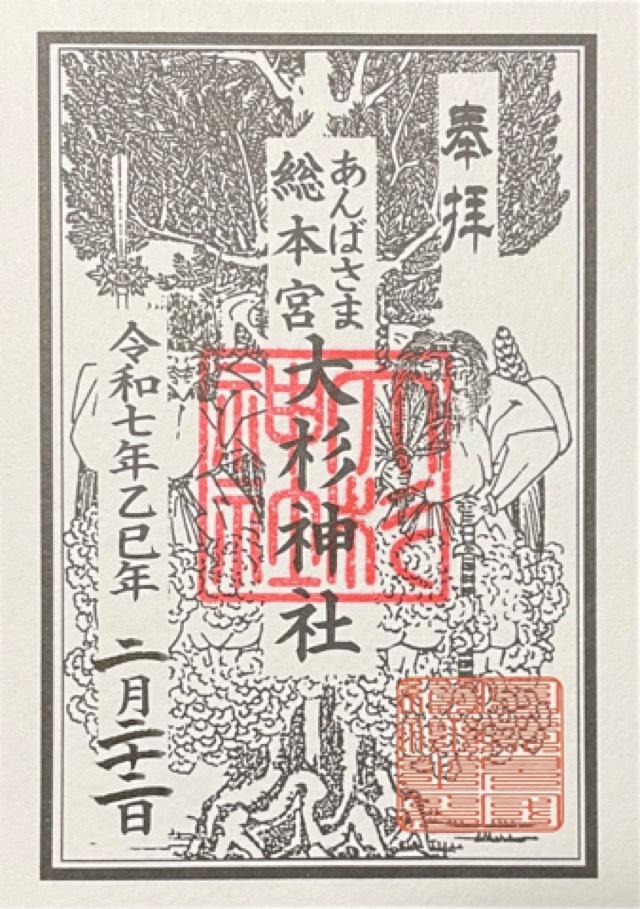 奉拝
あんばさま
総本宮
大杉神社
令和七年乙巳年 二月二十二日